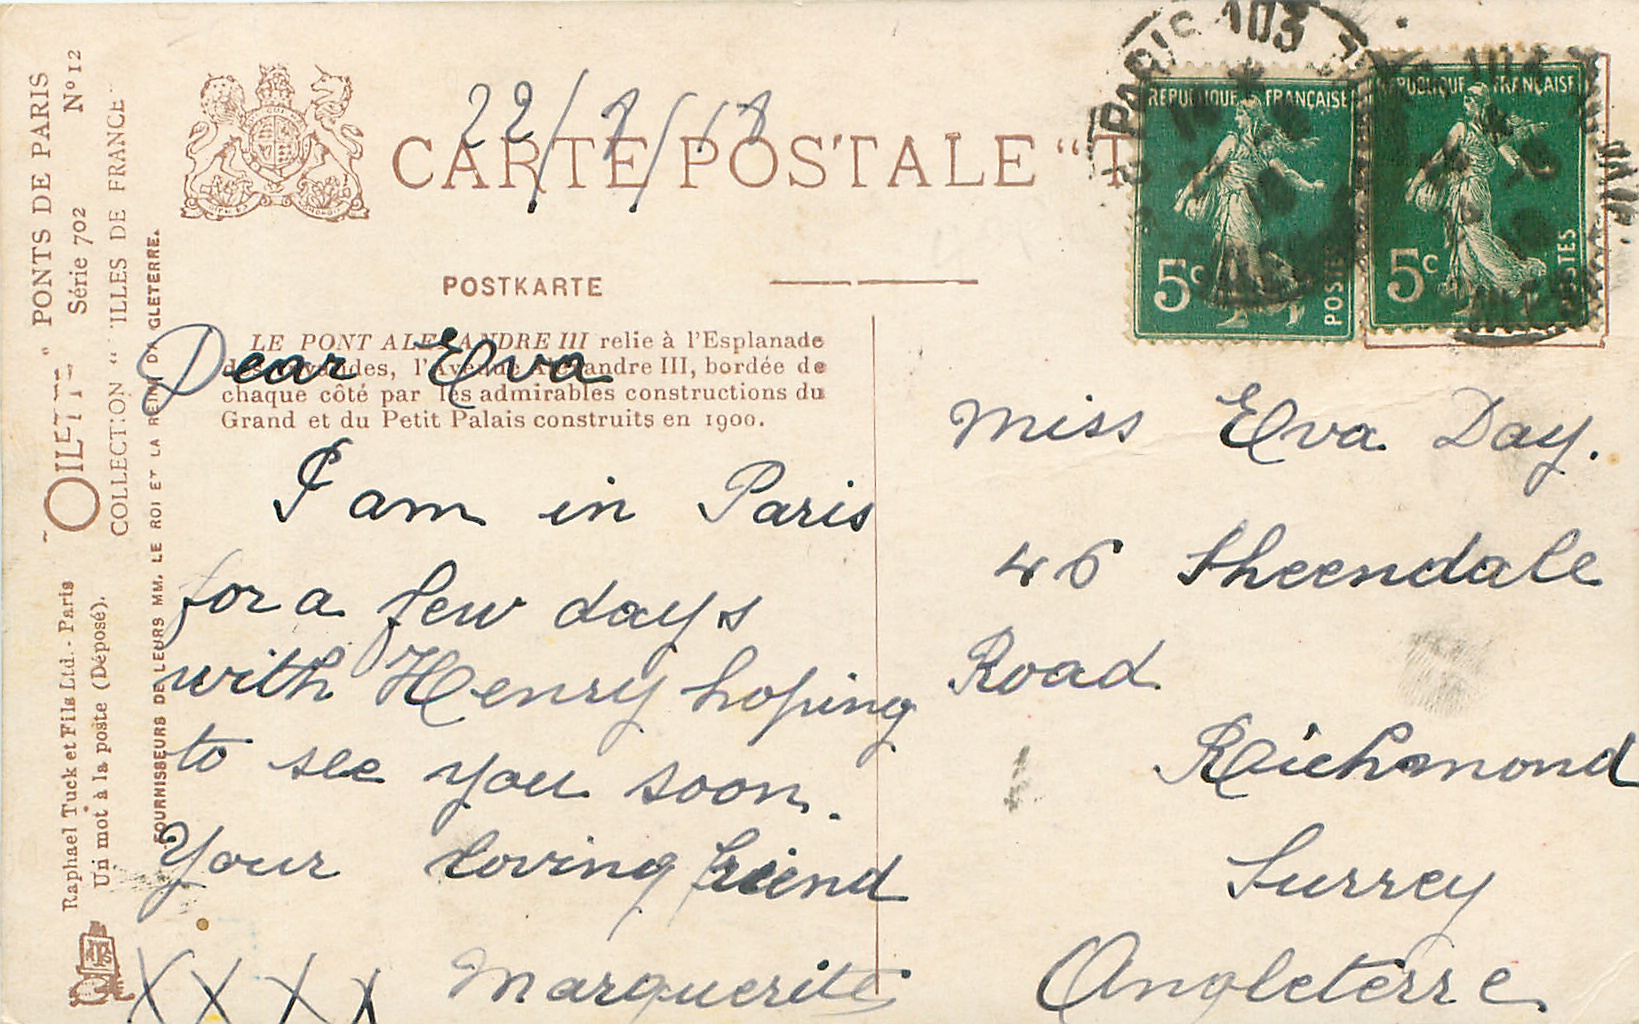 "PONTS DE PARIS
Série 702 Nº 12
OILETTE
COLLECTION "VILLES DE FRANCE"
FOURNISSEURS DE LEURS MM. LE ROI ET LA REINE D'ANGLETERRE.
Raphael Tuck et Fils Ltd. - Paris
Un mot à la poste (Déposé).
22/ /18
CARTE POSTALE "T
POSTKARTE
LE PONT ALEXANDRE III relie à l'Esplanade
des Invalides, l'Avenue Alexandre III, bordée de
chaque côté par les admirables constructions du
Grand et du Petit Palais construits en 1900.
PARIS 103
REPUBLIQUE FRANÇAISE
5c
POSTES
REPUBLIQUE FRANÇAISE
5c
POSTES
Dear Eva
I am in Paris
for a few days
with Henry hoping
to see you soon.
Your loving friend
XXXX Marguerite
Miss Eva Day.
46 Sheendale
Road
Richmond
Surrey
Angleterre